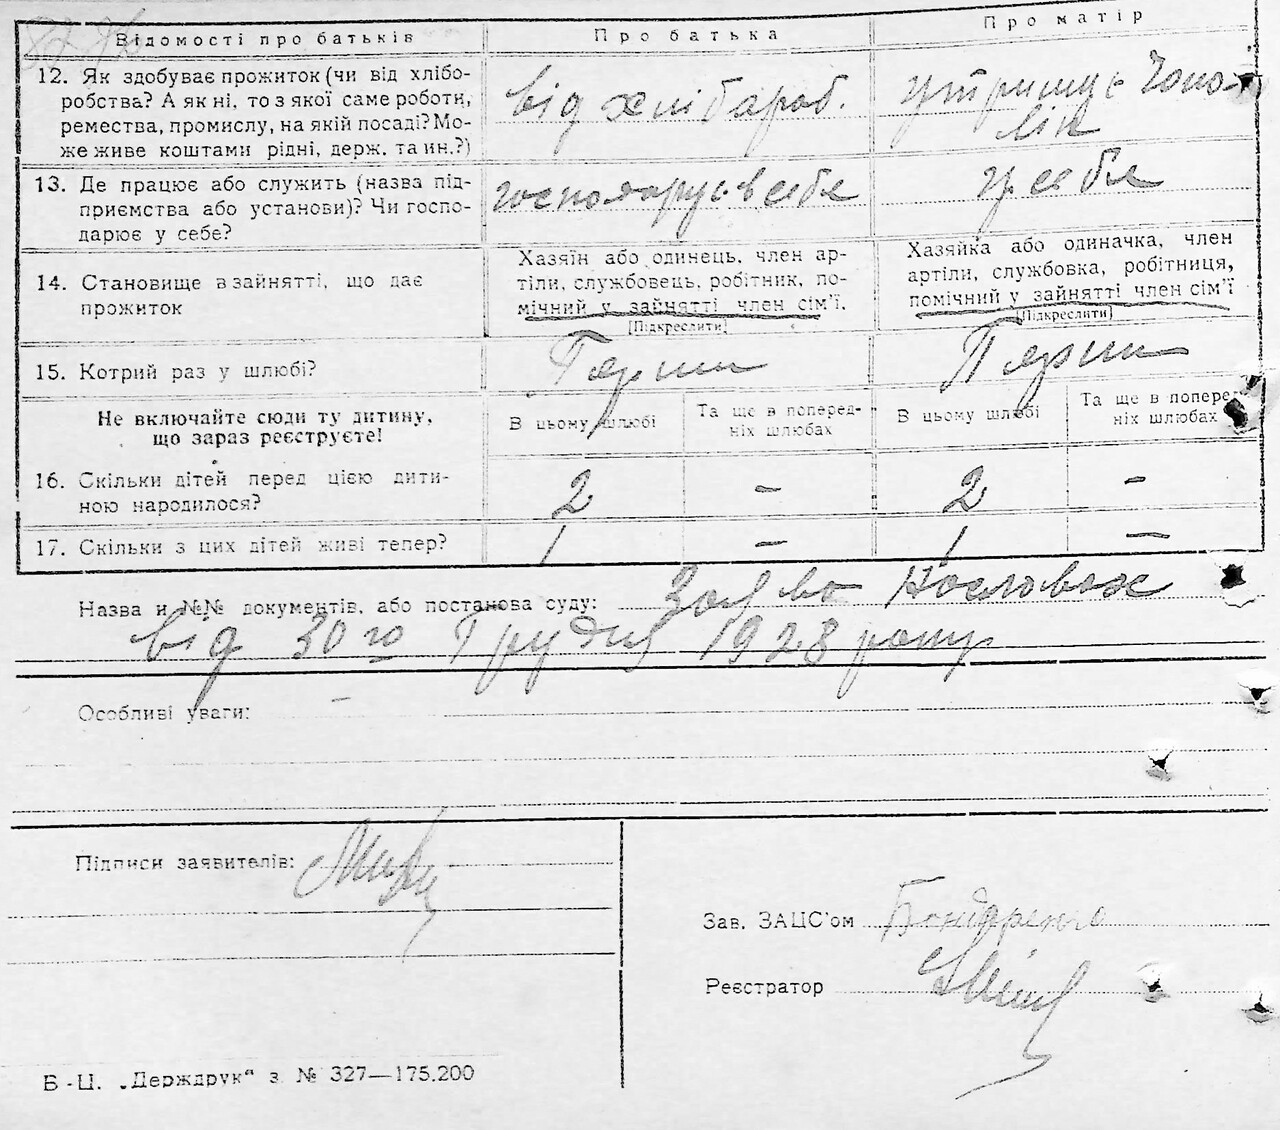 Відомості про батьків
Про батька
Про матір
12. Як здобуває прожиток (чи від хлібо-
робства? А як ні, то з якої саме роботи,
ремества, промислу, на якій посаді? Мо-
же живе коштами рідні, держ. та ин.?)
від хлібароб.
утримує чоло-
вік
13. Де працює або служить (назва під-
приємства або установи)? Чи госпо-
дарює у себе?
господарує в себе
у себе
14. Становище в зайнятті, що дає
прожиток
Хазяїн або одинець, член ар-
тіли, службовець, робітник, по-
мічний у зайнятті член сім'ї.
[Підкреслити]
Хазяйка або одиначка, член
артіли, службовка, робітниця,
помічний у зайнятті член сім'ї
[Підкреслити]
15. Котрий раз у шлюбі?
Перший
Перший
Не включайте сюди ту дитину,
що зараз реєструєте!
В цьому шлюбі
Та ще в поперед-
ніх шлюбах
В цьому шлюбі
Та ще в поперед-
ніх шлюбах
16. Скільки дітей перед цією дити-
ною народилося?
2
-
2
-
17. Скільки з цих дітей живі тепер?
1
-
1
-
Назва и №№ документів, або постанова суду:
від 30го Грудня 1928 року
Особливі уваги: -
Підписи заявителів:
Зав. ЗАЦС'ом Бондаренко
Реєстратор
Б-Ц. „Держдрук" з. № 327—175.200